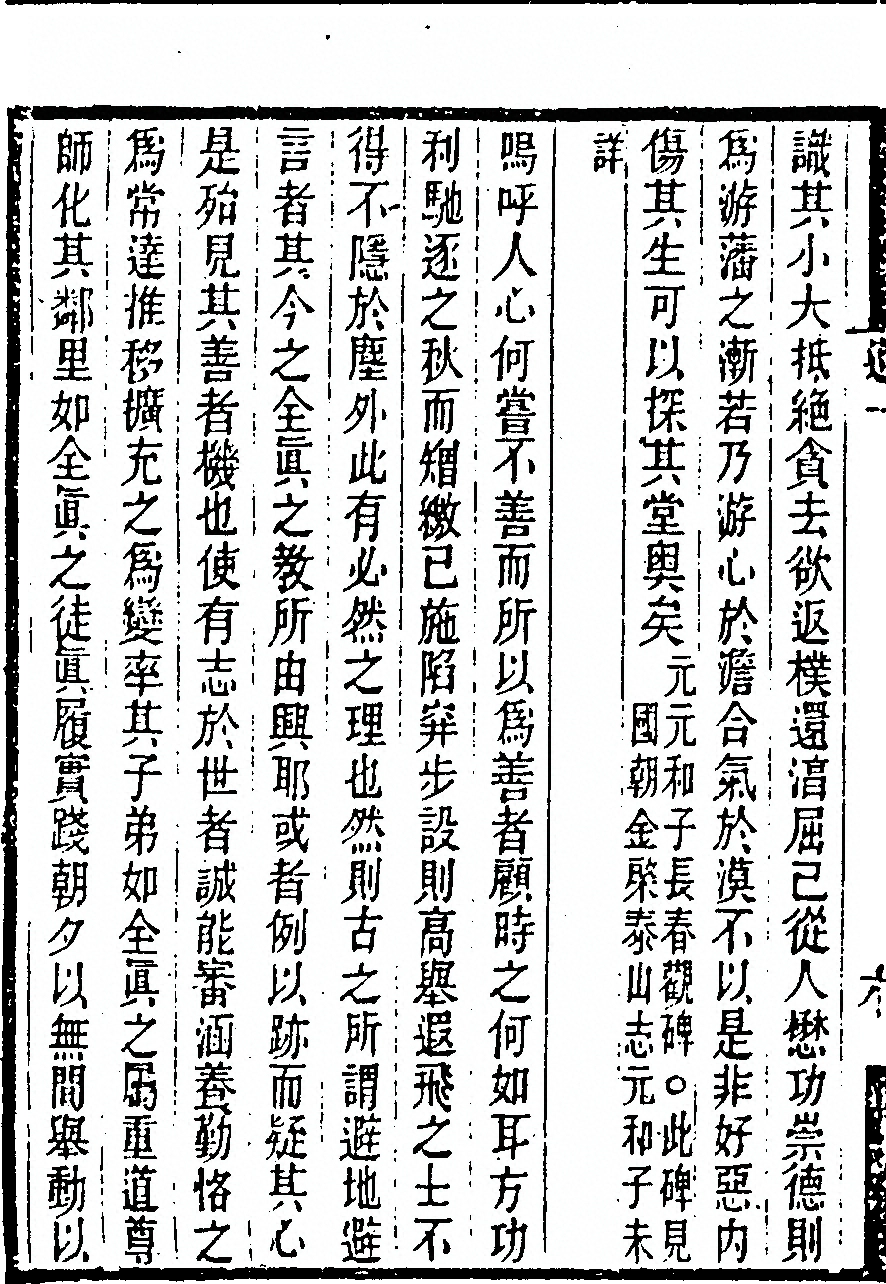 識其小大抵絶貪去欲返樸還湻屈己從人懋功崇德則
爲游藩之漸若乃游心於澹合氣於漠不以是非好惡内
傷其生可以探其堂奥矣
元元和子長春觀碑○此碑見
國朝金棨泰山志元和子未
詳
嗚呼人心何嘗不善而所以爲善者顧時之何如耳方功
利馳逐之秋而矰繳已施陷穽步設則高舉遐飛之士不
得不隱於塵外此有必然之理也然則古之所謂避地避
言者其今之全眞之教所由興耶或者例以跡而疑其心
是殆見其善者機也使有志於世者誠能審涵養勤恪之
爲常達推移擴充之爲變率其子弟如全眞之屬重道尊
師化其鄰里如全眞之徒眞履實踐朝夕以無間舉動以